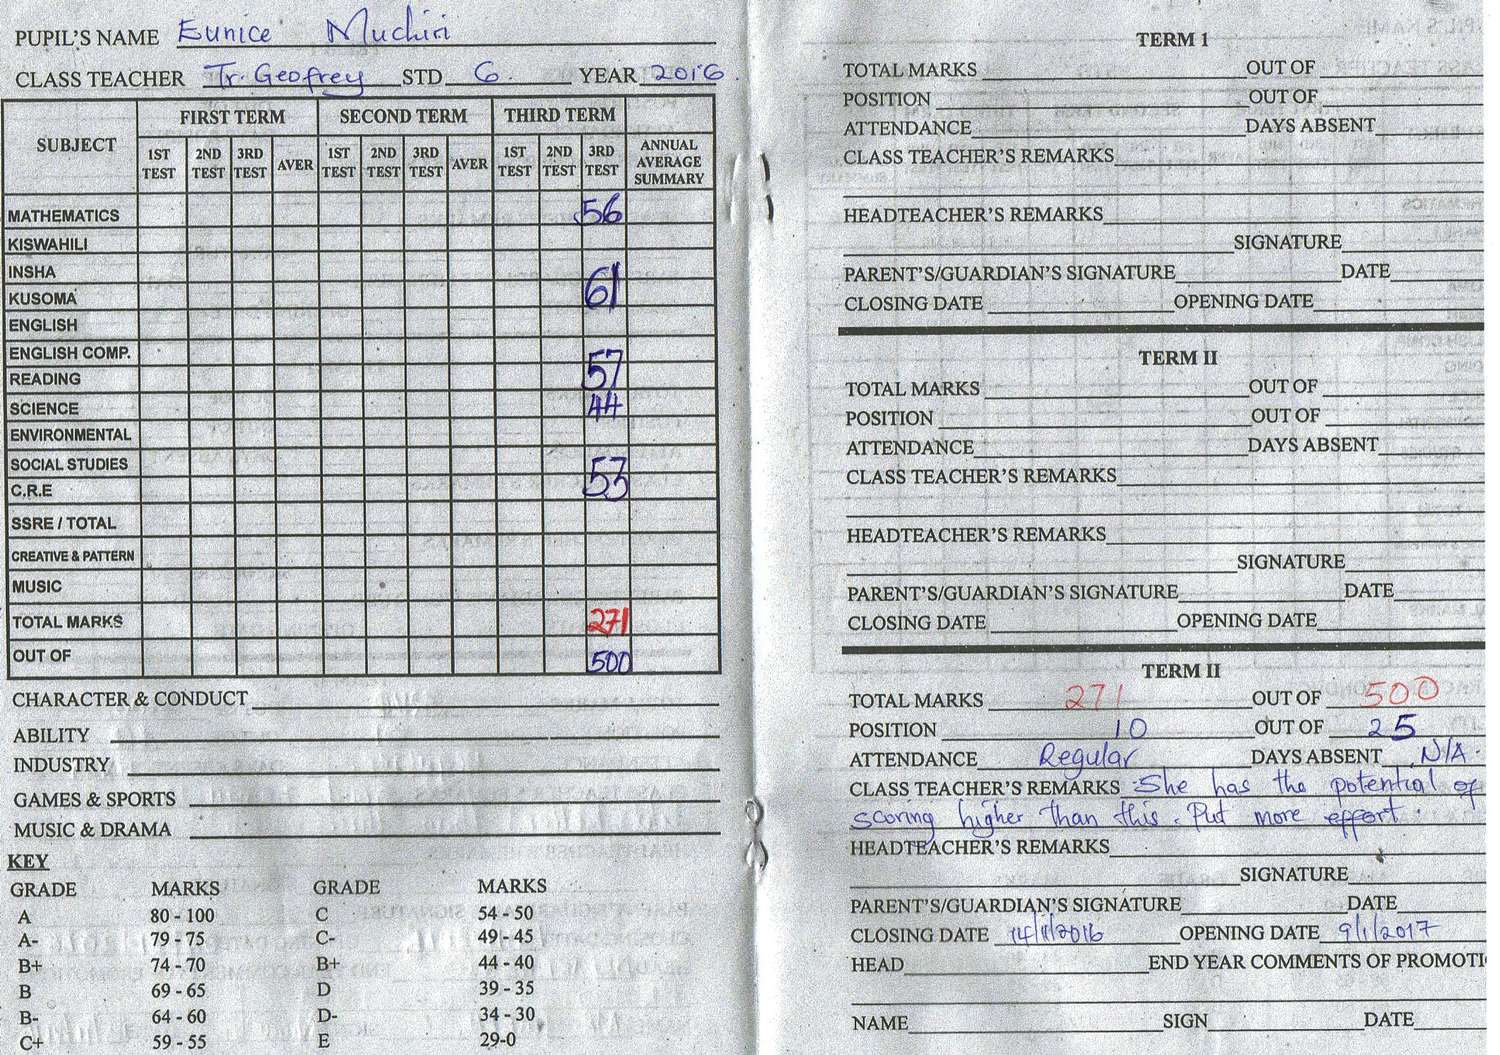 PUPIL'S NAME Eunice Muchiri
CLASS TEACHER Tr. Geofrey STD 6 YEAR 2016
SUBJECT FIRST TERM SECOND TERM THIRD TERM
1ST TEST 2ND TEST 3RD TEST AVER 1ST TEST 2ND TEST 3RD TEST AVER 1ST TEST 2ND TEST 3RD TEST ANNUAL AVERAGE SUMMARY
MATHEMATICS 56
KISWAHILI
INSHA
KUSOMA 61
ENGLISH
ENGLISH COMP.
READING 57
SCIENCE 44
ENVIRONMENTAL
SOCIAL STUDIES
C.R.E 53
SSRE / TOTAL
CREATIVE & PATTERN
MUSIC
TOTAL MARKS 271
OUT OF 500
CHARACTER & CONDUCT
ABILITY
INDUSTRY
GAMES & SPORTS
MUSIC & DRAMA
KEY
GRADE MARKS GRADE MARKS
A 80 - 100 C 54 - 50
A- 79 - 75 C- 49 - 45
B+ 74 - 70 B+ 44 - 40
B 69 - 65 D 39 - 35
B- 64 - 60 D- 34 - 30
C+ 59 - 55 E 29-0
TERM 1
TOTAL MARKS OUT OF
POSITION OUT OF
ATTENDANCE DAYS ABSENT
CLASS TEACHER'S REMARKS
HEADTEACHER'S REMARKS
SIGNATURE
PARENT'S/GUARDIAN'S SIGNATURE DATE
CLOSING DATE OPENING DATE
TERM II
TOTAL MARKS OUT OF
POSITION OUT OF
ATTENDANCE DAYS ABSENT
CLASS TEACHER'S REMARKS
HEADTEACHER'S REMARKS
SIGNATURE
PARENT'S/GUARDIAN'S SIGNATURE DATE
CLOSING DATE OPENING DATE
TERM II
TOTAL MARKS 271 OUT OF 500
POSITION 10 OUT OF 25
ATTENDANCE Regular DAYS ABSENT N/A.
CLASS TEACHER'S REMARKS She has the potential of
scoring higher than this. Put more effort.
HEADTEACHER'S REMARKS
SIGNATURE
PARENT'S/GUARDIAN'S SIGNATURE DATE
CLOSING DATE 14/11/2016 OPENING DATE 9/1/2017
HEAD END YEAR COMMENTS OF PROMOTI
NAME SIGN DATE